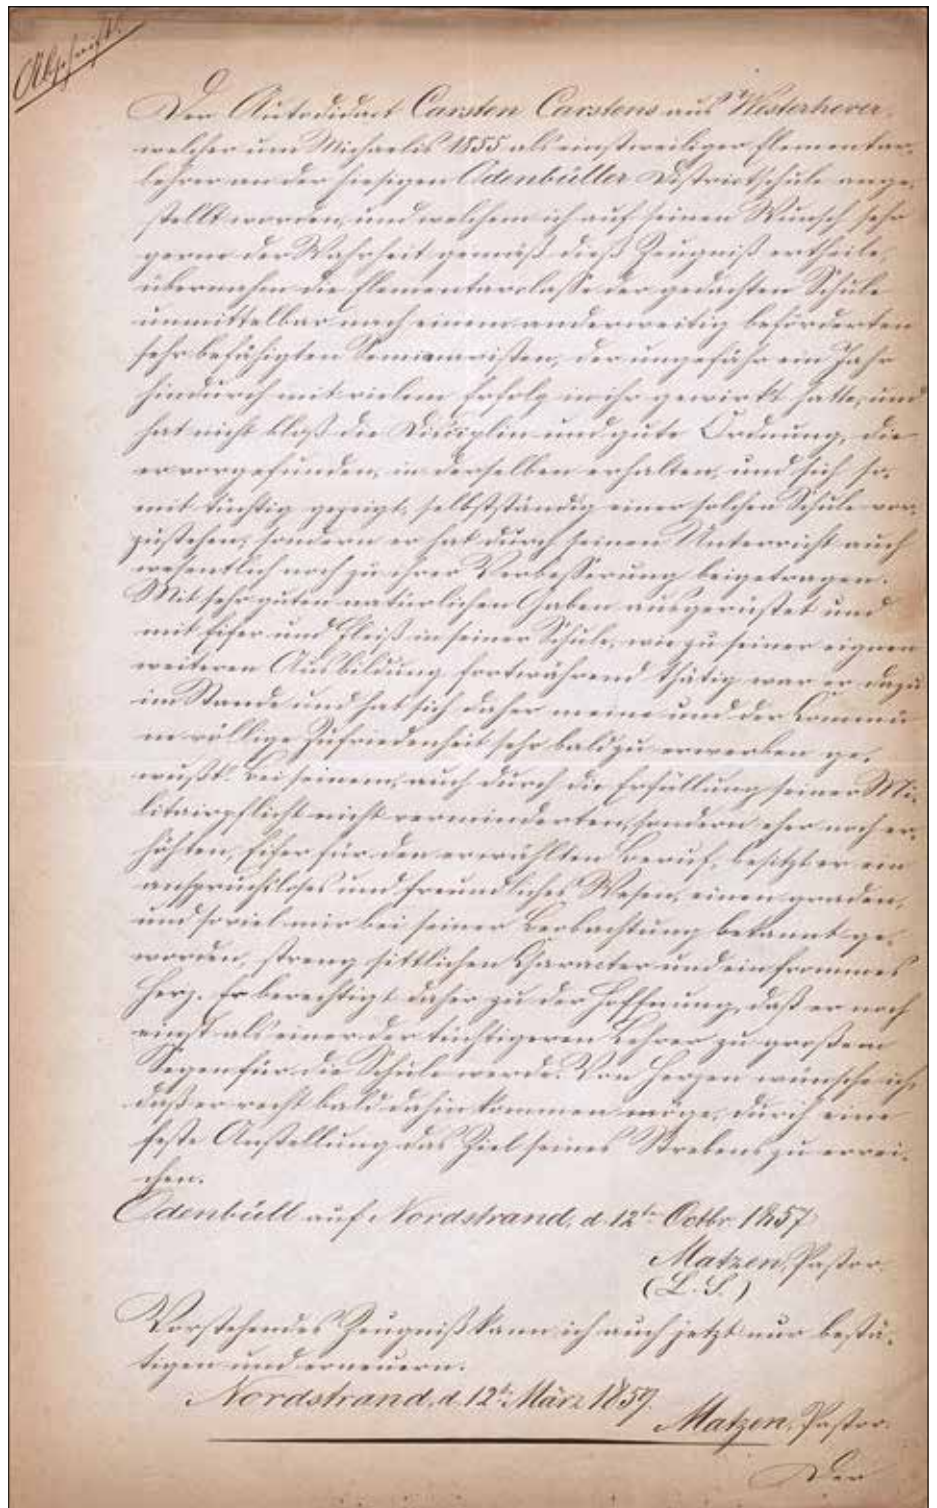 Abschrift.
Der Autodidact Carsten Carstens aus Westerhever,
welcher um Michaelis 1855 als einstweiliger Elementar-
lehrer an der hiesigen Odenbüller Districtschule ange-
stellt worden, und welchem ich auf seinen Wunsch sehr
gerne der Wahrheit gemäß dieß Zeugniß ertheile,
übernahm die Elementarclasse der gedachten Schule
unmittelbar nach einem anderweitig beförderten
sehr befähigten Seminaristen, der ungefähr ein Jahr
hindurch mit vielem Erfolg in ihr gewirkt hatte, und
hat nicht bloß die Disciplin und gute Ordnung, die
er vorgefunden, in derselben erhalten, und sich so-
mit tüchtig gezeigt, selbstständig einer solchen Schule vor-
zustehen, sondern er hat durch seinen Unterricht auch
wesentlich noch zu ihrer Verbesserung beigetragen.
Mit sehr guten natürlichen Gaben ausgerüstet und
mit Eifer und Fleiß in seiner Schule, wie zu seiner eignen
weiteren Ausbildung fortwährend thätig war er dazu
im Stande und hat sich daher meine und der Commü-
ne völlige Zufriedenheit sehr bald zu erwerben ge-
wußt. Bei seinem, auch durch die Erfüllung seiner Mi-
litairpflicht nicht verminderten, sondern eher noch er-
höhten, Eifer für den erwählten Beruf, besitzt er ein
anspruchsloses und freundliches Wesen, einen graden,
und soviel mir bei seiner Beobachtung bekannt ge-
worden, streng sittlichen Character und ein frommes
Herz. Er berechtigt daher zu der Hoffnung, daß er noch
einst als einer der tüchtigeren Lehrer zu großem
Segen für die Schule werde. Von Herzen wünsche ich,
daß er recht bald dahin kommen möge, durch eine
feste Anstellung das Ziel seines Strebens zu errei-
chen.
Odenbüll auf Nordstrand, d. 12te Octbr. 1857
Matzen, Pastor.
(L. S.)
Vorstehendes Zeugniß kann ich auch jetzt nur bestä-
tigen und erneuern.
Nordstrand, d. 12t März 1859.
Matzen, Pastor.
Der